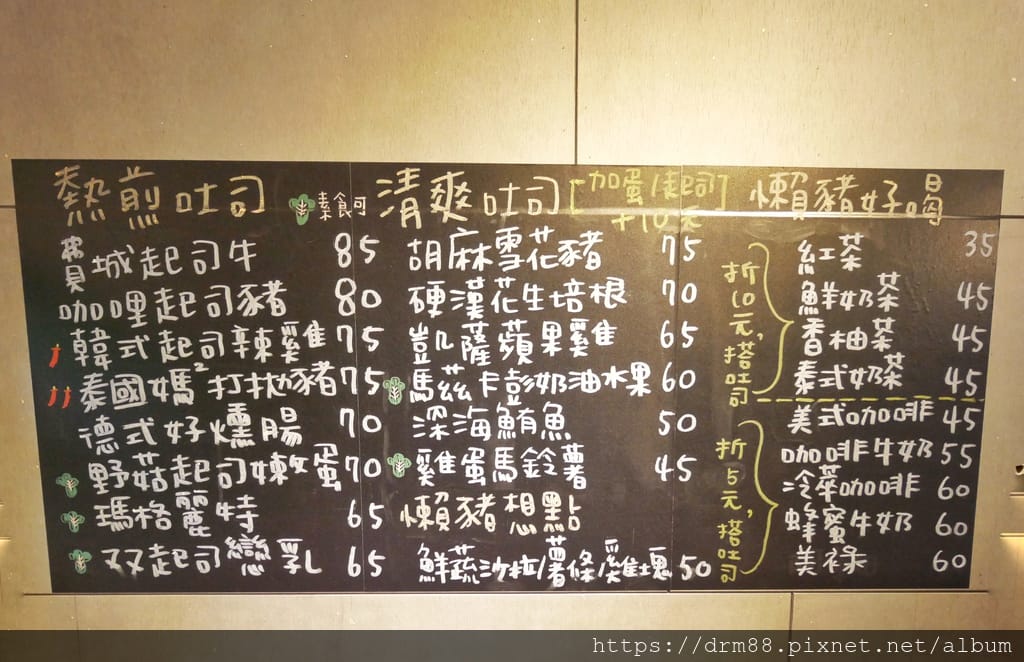 熱煎吐司
費城起司牛 85
咖哩起司豬 80
韓式起司辣雞 75
泰國媽²打拋豬 75
德式好燻腸 70
野菇起司嫩蛋 70
瑪格麗特 65
双起司戀乳 65
素食可
清爽吐司
[加蛋/起司]
+10元
胡麻雪花豬 75
硬漢花生培根 70
凱薩蘋果雞 65
馬茲卡彭奶油水果 60
深海鮪魚 50
雞蛋馬鈴薯 45
懶豬想點
鮮蔬沙拉/薯條/雞塊 50
懶豬好喝
紅茶 35
鮮奶茶 45
香柚茶 45
泰式奶茶 45
折10元,搭吐司
美式咖啡 45
咖啡牛奶 55
冷萃咖啡 60
蜂蜜牛奶 60
美祿 60
折5元,搭吐司
https://drm88.pixnet.net/album